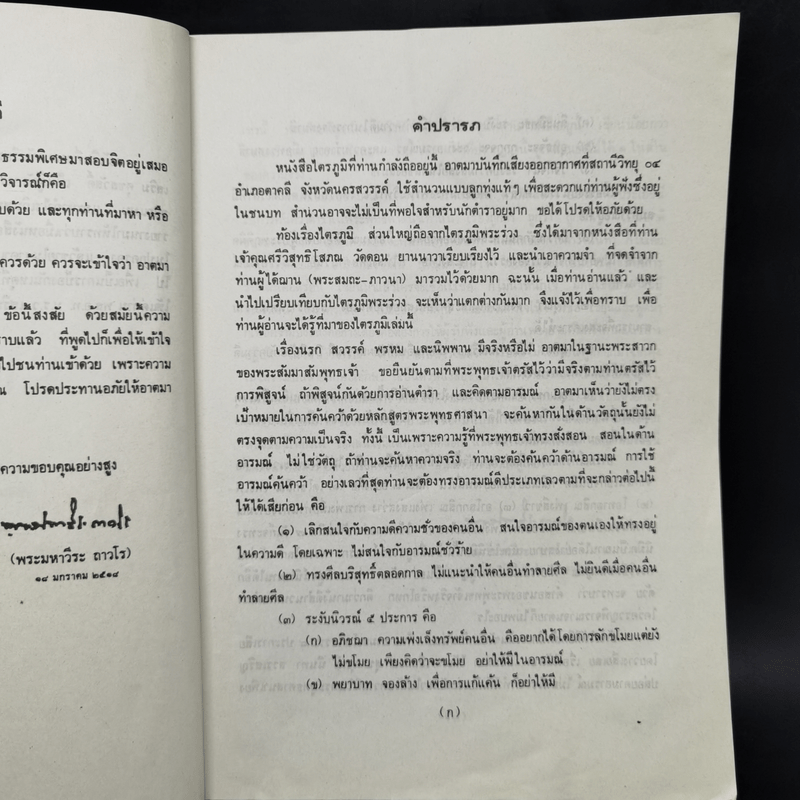 ธรรมพิเศษมาสอบจิตอยู่เสมอ
วิจารณ์ก็คือ
บด้วย และทุกท่านที่มาหา หรือ
ควรด้วย ควรจะเข้าใจว่า อาตมา
ข้อนี้สงสัย ด้วยสมัยนี้ความ
ราบแล้ว ที่พูดไปก็เพื่อให้เข้าใจ
งไปชนท่านเข้าด้วย เพราะความ
ณ โปรดประทานอภัยให้อาตมา
ความขอบคุณอย่างสูง
(พระมหาวีระ ถาวโร)
๑๘ มกราคม ๒๕๑๘
คำปรารภ
หนังสือไตรภูมิที่ท่านกำลังถืออยู่นี้ อาตมาบันทึกเสียงออกอากาศที่สถานีวิทยุ ๐๔
อำเภอตาคลี จังหวัดนครสวรรค์ ใช้สำนวนแบบลูกทุ่งแท้ๆ เพื่อสะดวกแก่ท่านผู้ฟังซึ่งอยู่
ในชนบท สำนวนอาจจะไม่เป็นที่พอใจสำหรับนักตำราอยู่มาก ขอได้โปรดให้อภัยด้วย
ท้องเรื่องไตรภูมิ ส่วนใหญ่ถือจากไตรภูมิพระร่วง ซึ่งได้มาจากหนังสือที่ท่าน
เจ้าคุณศรีวิสุทธิโสภณ วัดดอน ยานนาวาเรียบเรียงไว้ และนำเอาความจำ ที่จดจำจาก
ท่านผู้ได้ฌาน (พระสมถะ-ภาวนา) มารวมไว้ด้วยมาก ฉะนั้น เมื่อท่านอ่านแล้ว และ
นำไปเปรียบเทียบกับไตรภูมิพระร่วง จะเห็นว่าแตกต่างกันมาก จึงแจ้งไว้เพื่อทราบ เพื่อ
ท่านผู้อ่านจะได้รู้ที่มาของไตรภูมิเล่มนี้
เรื่องนรก สวรรค์ พรหม และนิพพาน มีจริงหรือไม่ อาตมาในฐานะพระสาวก
ของพระสัมมาสัมพุทธเจ้า ขอยืนยันตามที่พระพุทธเจ้าตรัสไว้ว่ามีจริงตามท่านตรัสไว้
การพิสูจน์ ถ้าพิสูจน์กันด้วยการอ่านตำรา และคิดตามอารมณ์ อาตมาเห็นว่ายังไม่ตรง
เป้าหมายในการค้นคว้าด้วยหลักสูตรพระพุทธศาสนา จะค้นหากันในด้านวัตถุนั้นยังไม่
ตรงจุดตามความเป็นจริง ทั้งนี้ เป็นเพราะความรู้ที่พระพุทธเจ้าทรงสั่งสอน สอนในด้าน
อารมณ์ ไม่ใช่วัตถุ ถ้าท่านจะค้นหาความจริง ท่านจะต้องค้นคว้าด้านอารมณ์ การใช้
อารมณ์ค้นคว้า อย่างเลวที่สุดท่านจะต้องทรงอารมณ์ดีประเภทเลวตามที่จะกล่าวต่อไปนี้
ให้ได้เสียก่อน คือ
(๑) เลิกสนใจกับความดีความชั่วของคนอื่น สนใจอารมณ์ของตนเองให้ทรงอยู่
ในความดี โดยเฉพาะ ไม่สนใจกับอารมณ์ชั่วร้าย
(๒) ทรงศีลบริสุทธิ์ตลอดกาล ไม่แนะนำให้คนอื่นทำลายศีล ไม่ยินดีเมื่อคนอื่น
ทำลายศีล
(๓) ระงับนิวรณ์ ๕ ประการ คือ
(ก) อภิชฌา ความเพ่งเล็งทรัพย์คนอื่น คืออยากได้โดยการลักขโมยแต่ยัง
ไม่ขโมย เพียงคิดว่าจะขโมย อย่าให้มีในอารมณ์
(ข) พยาบาท จองล้าง เพื่อการแก้แค้น ก็อย่าให้มี
(ก)